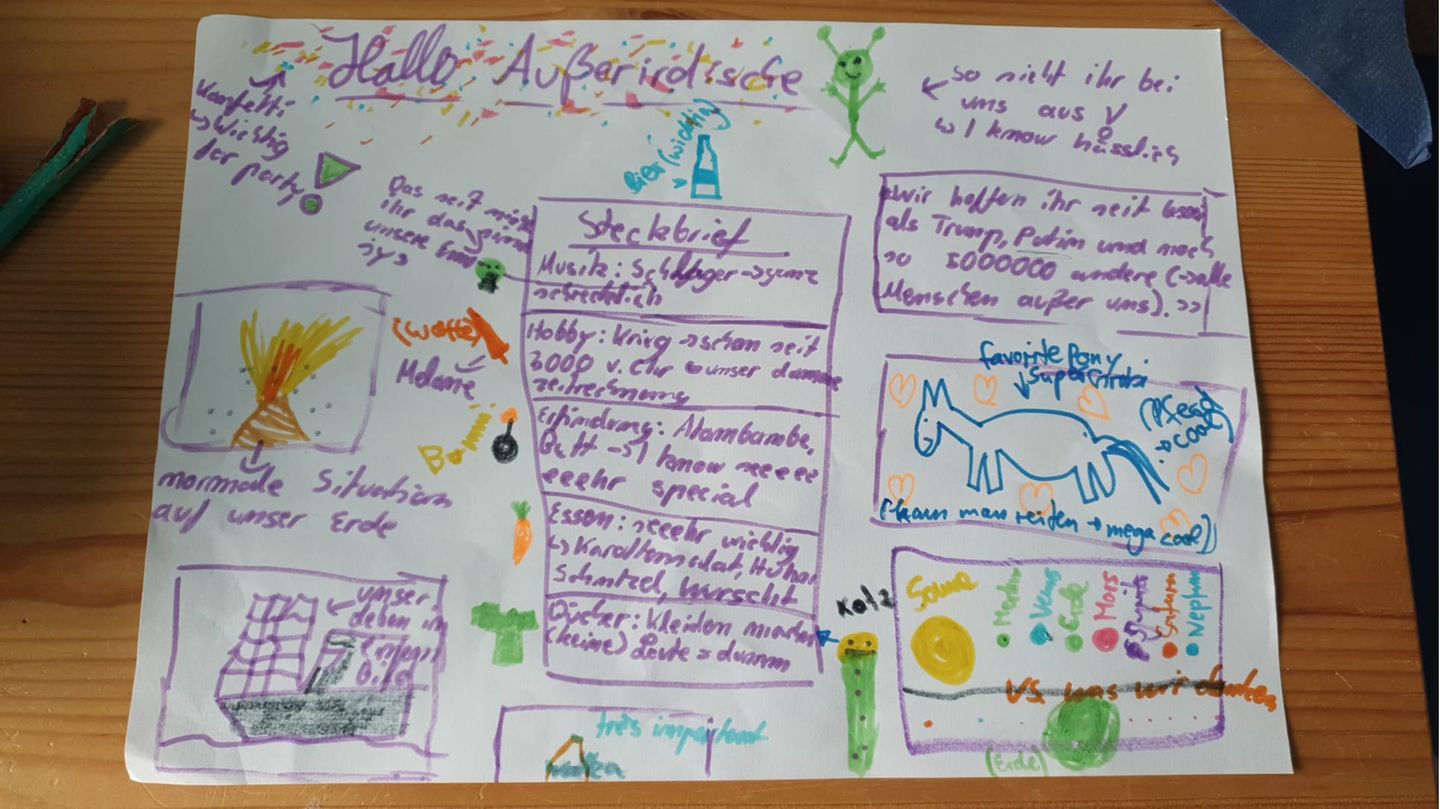 Hallo Außerirdische
Konfetti
↳ Wichtig
for party
Bier (wichtig)
so sieht ihr bei
uns aus
↳ I know hässlich
Das seit
ihr das
unsere
Wir hoffen ihr seit besser
als Trump, Putin und noch
so 5000000 andere (→ alle
Menschen außer uns). >>
Steckbrief
Musik: Schlager → ganz
schrecklich
Hobby: Krieg → schon seit
3000 v. Chr ↳ unser dumme
zeitrechnung
Erfindung: Atombombe,
Bett → I know seeeee
eeeehr special
Essen: seeehr wichtig
↳ Karottensalat, Huhn
Schnitzel, Wurscht
Bücher: Kleider machen
(keine) Leute = dumm
(Waffe)
Melone
normale Situation
auf unser Erde
unser
leben in
einem
bild
favorite Pony
(Pferd
→ cool)
(kann man reiten → mega cool)
Sonne
Merkur
Venus
Erde
Mars
Jupiter
Saturn
Neptun
VS was wir denken
(Erde)
très important